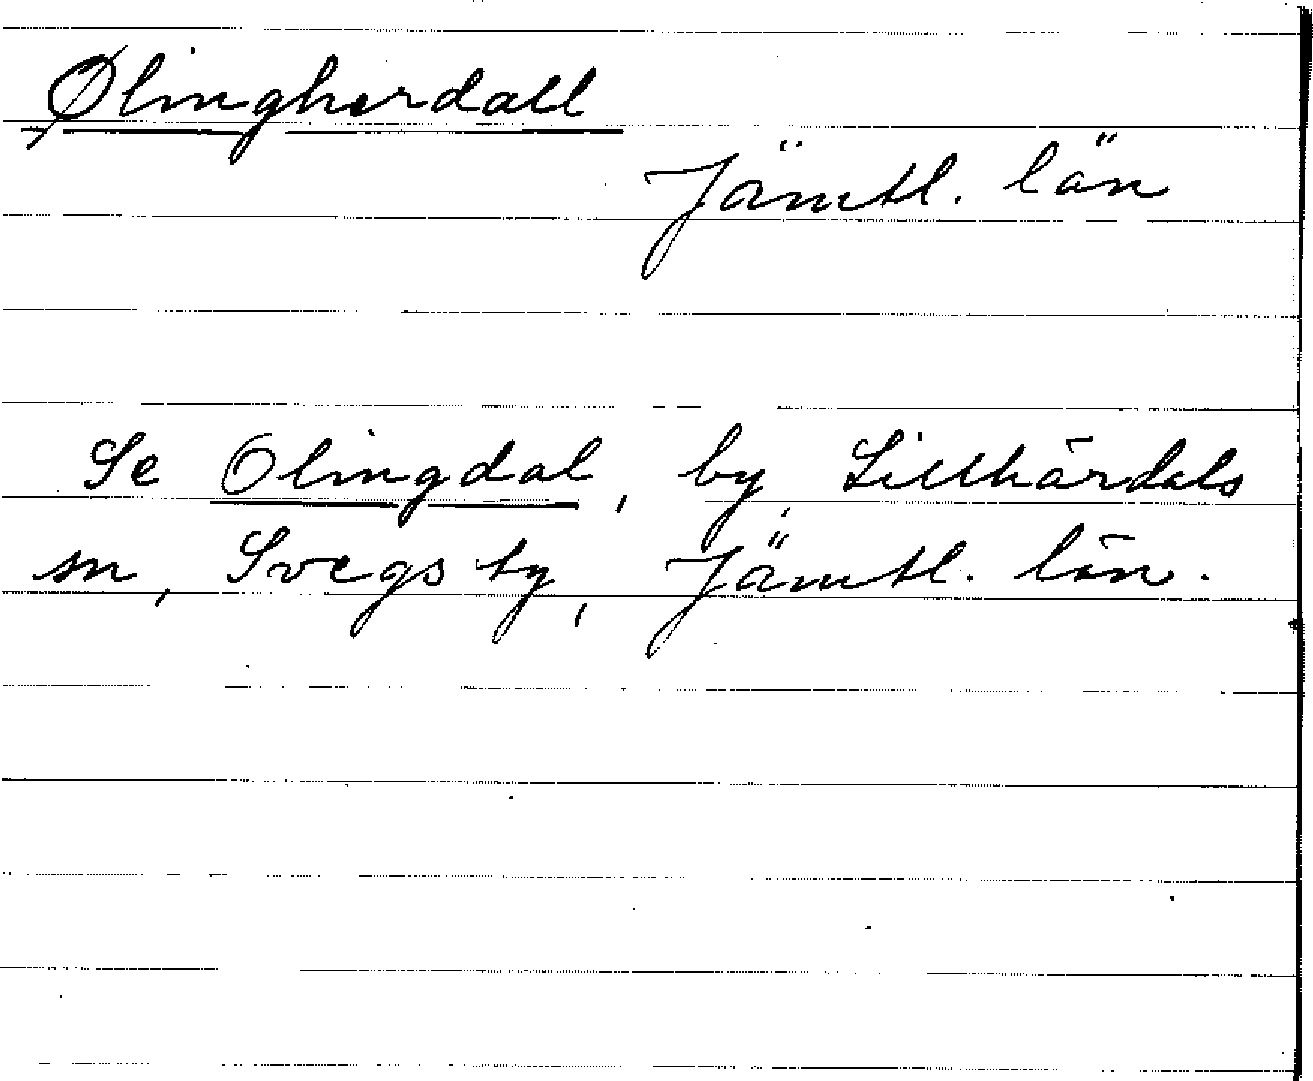 Ølingherdall
Jämtl. län
Se Olingdal, by, Lillhärdals
sn, Svegs tg, Jämtl. län.